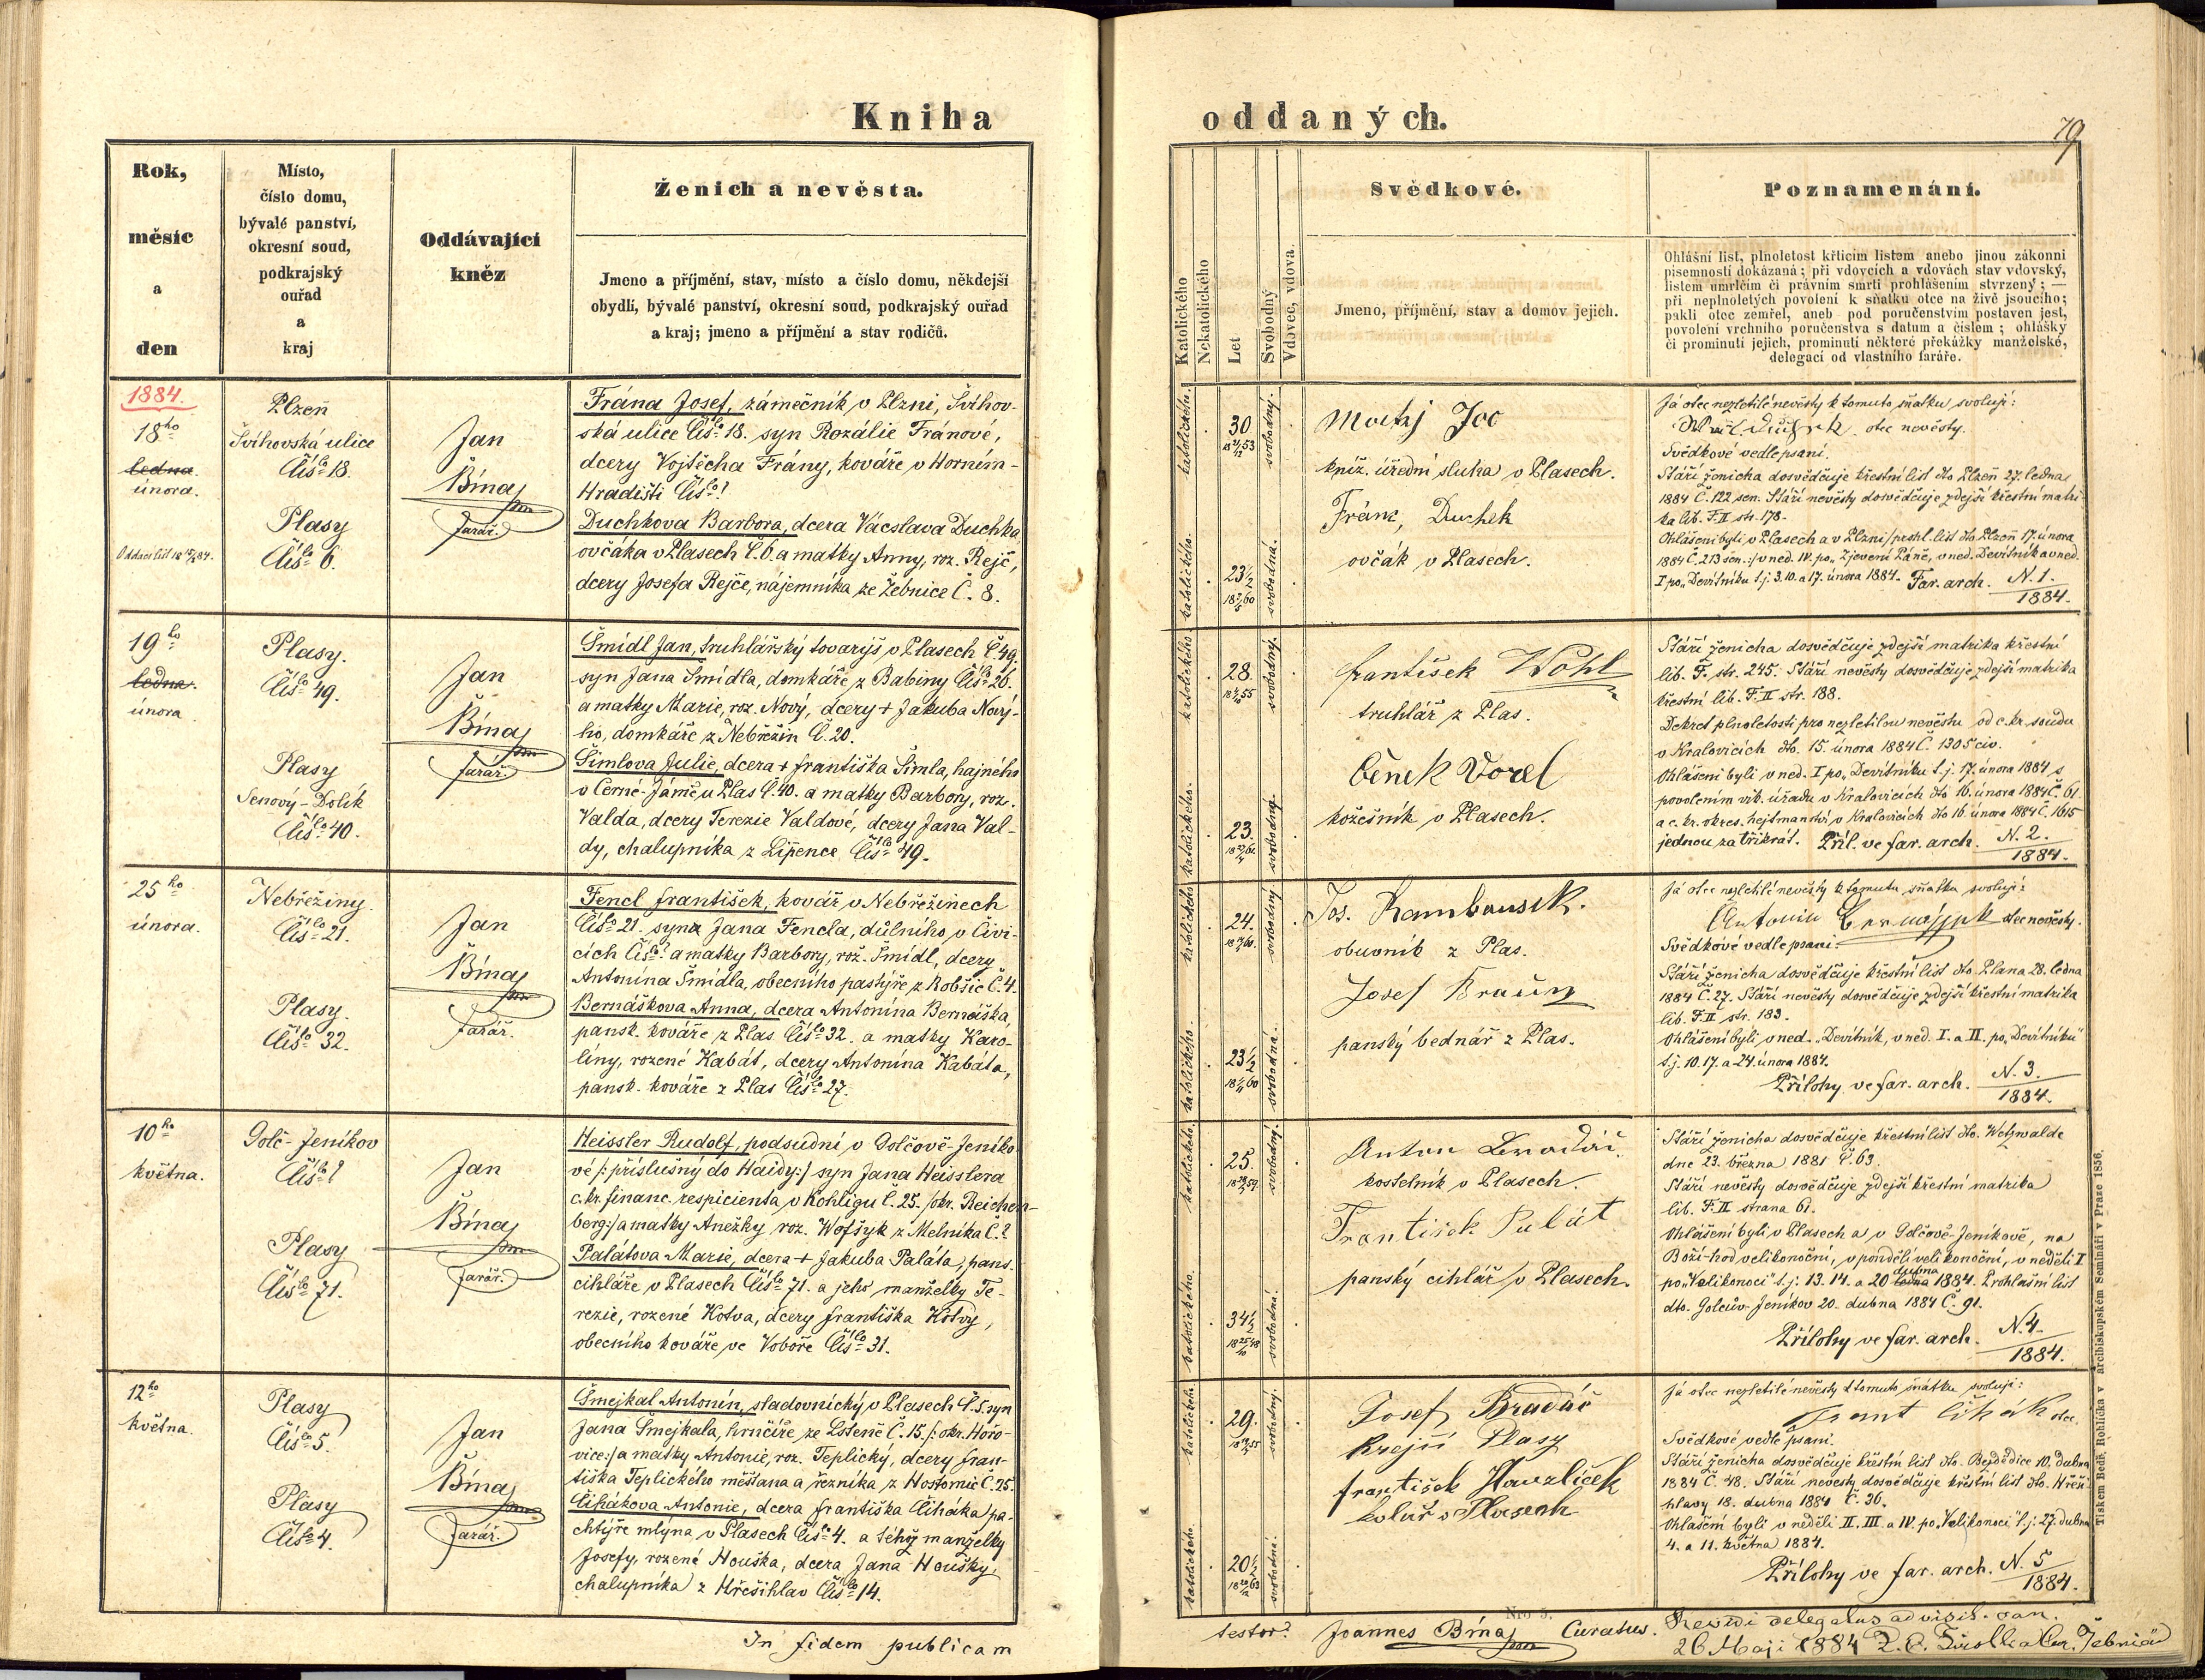 Kniha
oddaných.
79
Rok,
měsíc
a
den
Místo,
číslo domu,
bývalé panství,
okresní soud,
podkrajský
ouřad
a
kraj
Oddávající
kněz
Ženich a nevěsta.
Jmeno a příjmění, stav, místo a číslo domu, někdejší
obydlí, bývalé panství, okresní soud, podkrajský ouřad
a kraj; jmeno a příjmění a stav rodičů.
Katolického
Nekatolického
Let
Svobodný
Vdovec, vdova.
Svědkové.
Jmeno, příjmění, stav a domov jejich.
Poznamenání.
Ohlášní list, plnoletost křticím listem anebo jinou zákonní
písemností dokázaná; při vdovcích a vdovách stav vdovský,
listem umrlčím či právním smrti prohlášením stvrzený; —
při neplnoletých povolení k sňatku otce na živě jsoucího;
pakli otec zemřel, aneb pod poručenstvím postaven jest,
povolení vrchního poručenstva s datum a číslem; ohlášky
či prominutí jejich, prominutí některé překážky manželské,
delegací od vlastního faráře.
1884.
18ho
ledna.
února.
Plzeň
Švihovská ulice
Čís. 18.
Plasy
Čís. 6.
Jan
Bína
farář.
Frána Josef, zámečník v Plzni, Švihov-
ská ulice Čís. 18. syn Rozálie Fránové,
dcery Vojtěcha Frány, kováře v Horním-
Hradišti Čís. ?
Duchkova Barbora, dcera Vácslava Duchka
ovčáka v Plasech Č. 6. a matky Anny, roz. Rejč,
dcery Josefa Rejče, nájemníka ze Žebnice Č. 8.
katolického.
30
svobodný.
katolického.
23½
svobodná.
kníž. úřední sluha v Plasech.
Franc, Duchek
ovčák v Plasech.
Já otec nezletilé nevěsty k tomuto sňatku svoluji:
otec nevěsty.
Svědkové vedlepsaní.
Stáří ženicha dosvědčuje křestní list dto Plzeň 27. ledna
1884 Č. 122 sen. Stáří nevěsty dosvědčuje zdejší křestní matri-
ka lib. F. II str. 178.
Ohlášeni byli v Plasech a v Plzni /: prohl. list dto Plzeň 17. února
1884 Č. 213 sen. :/ v ned. IV. po „Zjevení Páně, v ned. Devítník a v ned.
I po „Devítníku t. j. 3. 10. a 17. února 1884. Far. arch. N. 1.
1884.
19ho
ledna.
února
Plasy.
Čís. 49.
Plasy
Senový-Dolík
Čís. 40.
Jan
Bína
farář
Šmídl Jan, truhlářský tovaryš v Plasech Č. 49.
syn Jana Šmídla, domkáře z Babiny Čís. 26.
a matky Marie, roz. Nový, dcery + Jakuba Nový-
ho, domkáře z Nebřežin Č. 20.
Šimlova Julie, dcera + Františka Šimla, hajného
v Černé-Jámě u Plas Č. 40. a matky Barbory, roz.
Valda, dcery Terezie Valdové, dcery Jana Val-
dy, chalupníka z Lípence Čís. 49.
katolického
28.
svobodný.
katolického.
23.
František Wohl
truhlář z Plas.
Čeněk Vorel
kožešník v Plasech.
Stáří ženicha dosvědčuje zdejší matrika křestní
lib. F. str. 245. Stáří nevěsty dosvědčuje zdejší matrika
křestní lib. F. II str. 188.
Dekret plnoletosti pro nezletilou nevěstu od c. kr. soudu
v Kralovicích dto. 15. února 1884 Č. 1305 civ.
Ohlášeni byli v ned. I po „Devítníku t. j. 17. února 1884 s
povolením vik. úřadu v Kralovicích dto 16. února 1884 Č. 61
a c. kr. okres. hejtmanství v Kralovicích dto 16. února 1884 Č. 1615
jednou za třikrát. Příl. ve far. arch. N. 2.
1884.
25ho
února.
Nebřežiny.
Čís. 21.
Plasy.
Čís. 32.
Jan
Bína
farář.
Fencl František, kovář v Nebřežinech
Čís. 21. syn Jana Fencla, důlního v Čivi-
cích Čís. ? a matky Barbory, roz. Šmídl, dcery
Antonína Šmídla, obecního pastýře z Robšic Č. 4.
Bernáškova Anna, dcera Antonína Bernáška,
pansk. kováře z Plas Čís. 32. a matky Karo-
líny, rozené Kabát, dcery Antonína Kabáta,
pansk. kováře z Plas Čís. 27.
katolického
24.
svobodný
katolického
23½
svobodná.
Jos. Rambousek.
obuvník z Plas.
Josef Braun
panský bednář z Plas.
Já otec nezletilé nevěsty k tomuto sňatku svoluji:
Antonin otec nevěsty.
Svědkové vedlepsaní.
Stáří ženicha dosvědčuje křestní list dto. Plana 28. ledna
1884 Č. 27. Stáří nevěsty dosvědčuje zdejší křestní matrika
lib. F. II str. 183.
Ohlášeni byli v ned. „Devítník, v ned. I. a II. po „Devítníku"
t. j. 10. 17. a 24. února 1884.
Přílohy ve far. arch. N. 3.
1884.
10ho
května.
Golč-Jeníkov
Čís. ?
Plasy
Čís. 71.
Jan
Bína
farář.
Heissler Rudolf, podsudní v Golčově-Jeníko-
vé /: příslušný do Haidy :/ syn Jana Heisslera
c. kr. financ. respicienta v Kohligu Č. 25. /okr. Reichen-
berg:/ a matky Anežky roz. Wofšyk z Mělníka Č. ?
Palátova Marie, dcera + Jakuba Paláta, pans.
cihláře v Plasech Čís. 71. a jeho manželky Te-
rezie, rozené Kotva, dcery Františka Kotvy,
obecního kováře ve Vobôře Čís. 31.
katolického.
25.
svobodný.
katolického.
34½
svobodná.
Anton
kostelník v Plasech.
František Palát
panský cihlář v Plasech.
Stáří ženicha dosvědčuje křestní list dto. Wetzwalde
dne 23. března 1881 Č. 63.
Stáří nevěsty dosvědčuje zdejší křestní matrika
lib. F. II strana 61.
Ohlášeni byli v Plasech a v Golčově-Jeníkově, na
Boží-hod velikonoční, v pondělí velikonoční, v neděli I
po „Velikonoci" t. j. 13. 14. a 20 ledna dubna 1884. Prohlašní list
dto. Golcův-Jeníkov 20. dubna 1884 Č. 91.
Přílohy ve far. arch. N. 4.
1884.
12ho
května.
Plasy
Čís. 5.
Plasy
Čís. 4.
Jan
Bína
farář.
Šmejkal Antonín, sladovnický v Plasech Č. 5. syn
Jana Šmejkala, hrnčíře ze Lôšeně Č. 15. /: okr. Hořo-
vice:/ a matky Antonie, roz. Teplický, dcery Fran-
tiška Teplického měšťana a řezníka z Hostomic Č. 25.
Čihákova Antonie, dcera Františka Čiháka, pa-
chtýře mlýna v Plasech Čís. 4. a téhož manželky
Josefy, rozené Houška, dcera Jana Houšky,
chalupníka z Hřešihlav Čís. 14.
29.
svobodný.
katolického.
20½
svobodná.
Josef Bradáč
Krejčí Plasy
František Havzlíček
kolář v Plasech
Já otec nezletilé nevěsty k tomuto sňatku svoluji:
Frant Čihák otec.
Svědkové vedle psaní.
Stáří ženicha dosvědčuje křestní list dto. 10. dubna
1884 Č. 48. Stáří nevěsty dosvědčuje křestní list dto. Hřeši-
hlavy 18. dubna 1884 Č. 36.
Ohlášeni byli v neděli II. III. a IV. po „Velikonoci" t. j. 27. dubna
4. a 11. května 1884.
Přílohy ve far. arch. N. 5
1884.
Tiskem Bedř. Rohlíčka v arcibiskupském Semináři v Praze 1856.
Nro 5.
In fidem publicam
testor Joannes Bína Curatus.
Revidi delegatus ad visit. can.
26 Maji 1884